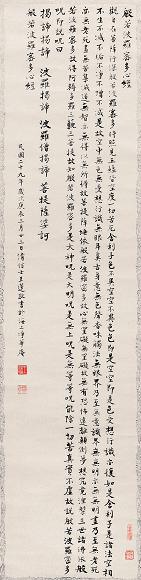 般若波羅蜜多心經
觀自在菩薩行深般若波羅蜜多時照見五蘊皆空度一切苦厄舍利子色不異空空不異色色即是空空即是色受想行識亦復如是舍利子是諸法空相
不生不滅不垢不淨不增不減是故空中無色無受想行識無眼耳鼻舌身意無色聲香味觸法無眼界乃至無意識界無無明亦無無明盡乃至無老死
亦無老死盡無苦集滅道無智亦無得以無所得故菩提薩埵依般若波羅蜜多故心無罣礙無罣礙故無有恐怖遠離顛倒夢想究竟涅槃三世諸佛依般
若波羅蜜多故得阿耨多羅三藐三菩提故知般若波羅蜜多是大神咒是大明咒是無上咒是無等等咒能除一切苦真實不虛故說般若波羅蜜多
咒即說咒曰
揭諦揭諦 波羅揭諦 波羅僧揭諦 菩提薩婆訶
般若波羅蜜多心經
民國二十九年歲次庚辰三月廿三日清信士王 敬書於海上淨華庵